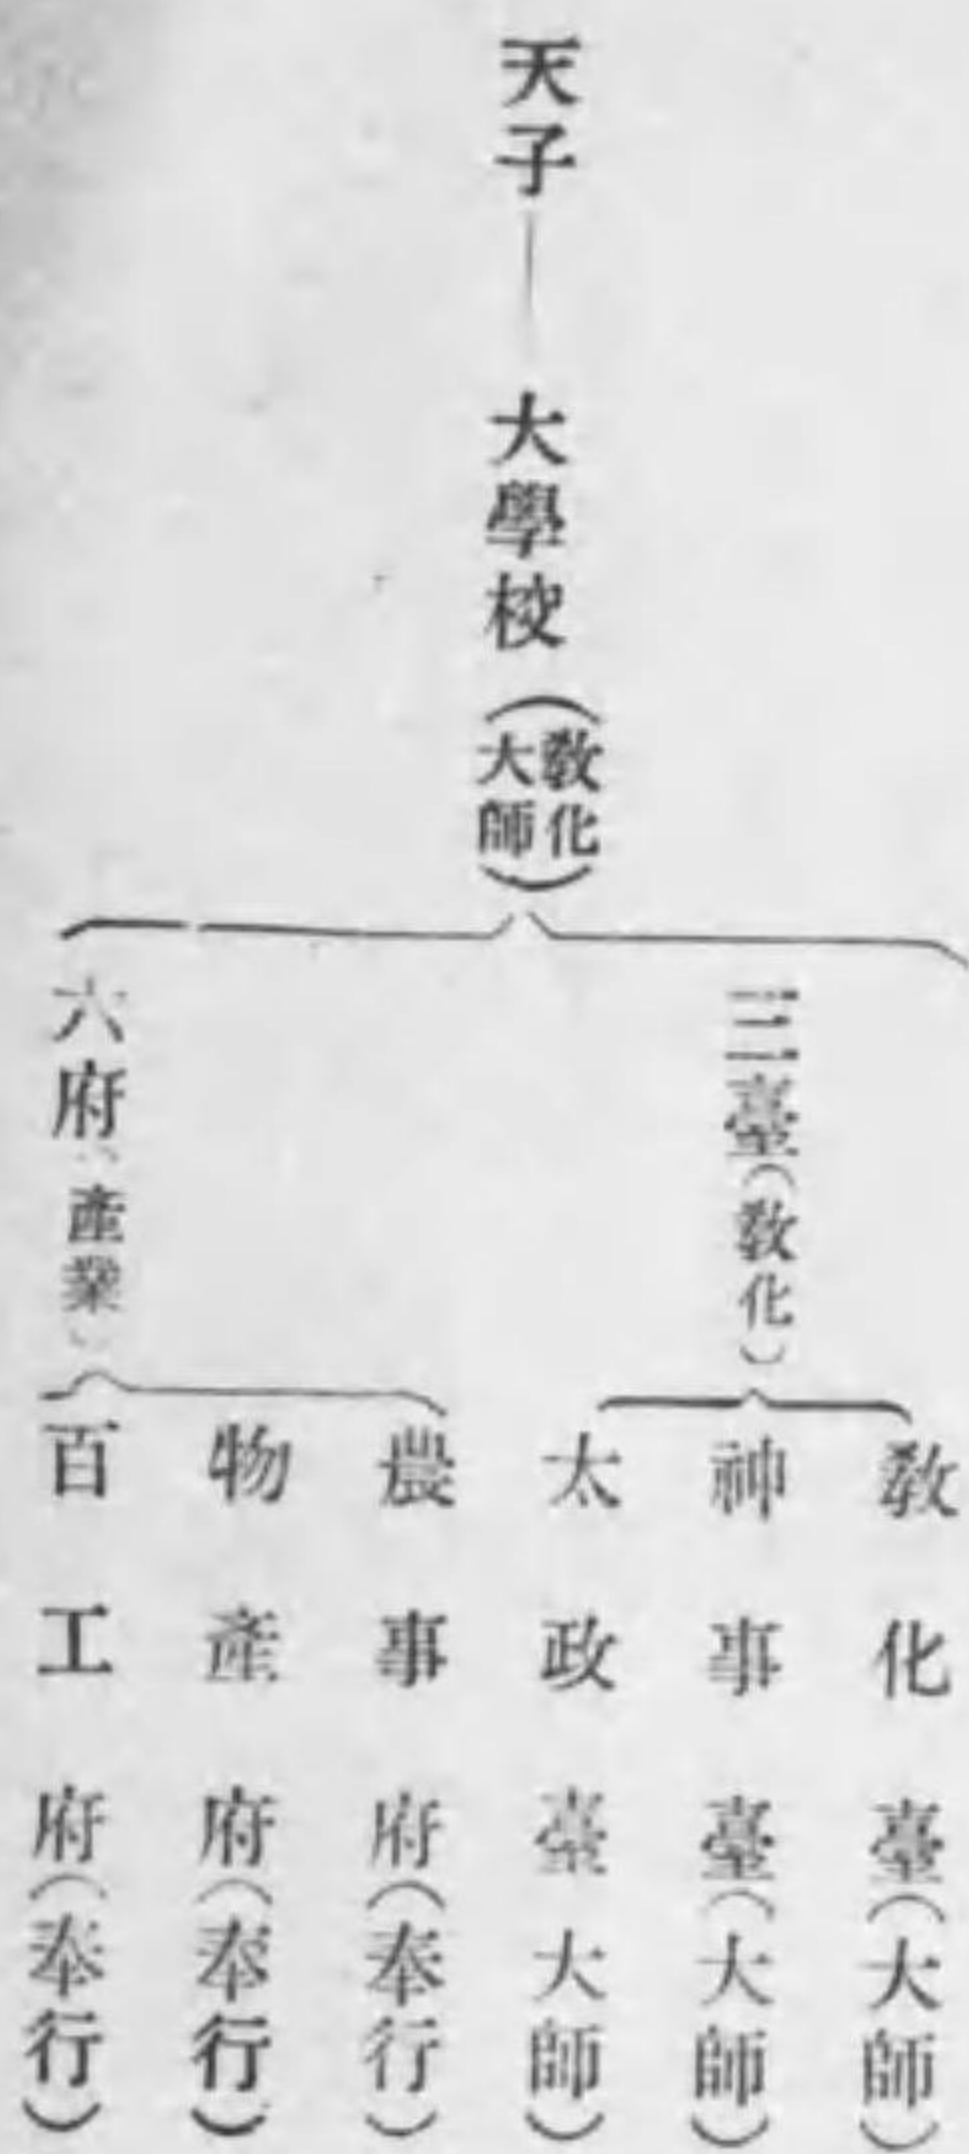 天子
大學校(教化大師)
三臺(教化)
教化臺(大師)
神事臺(大師)
太政臺大師)
六府(產業)
農事府(奉行)
物產府(奉行)
百工府(奉行)